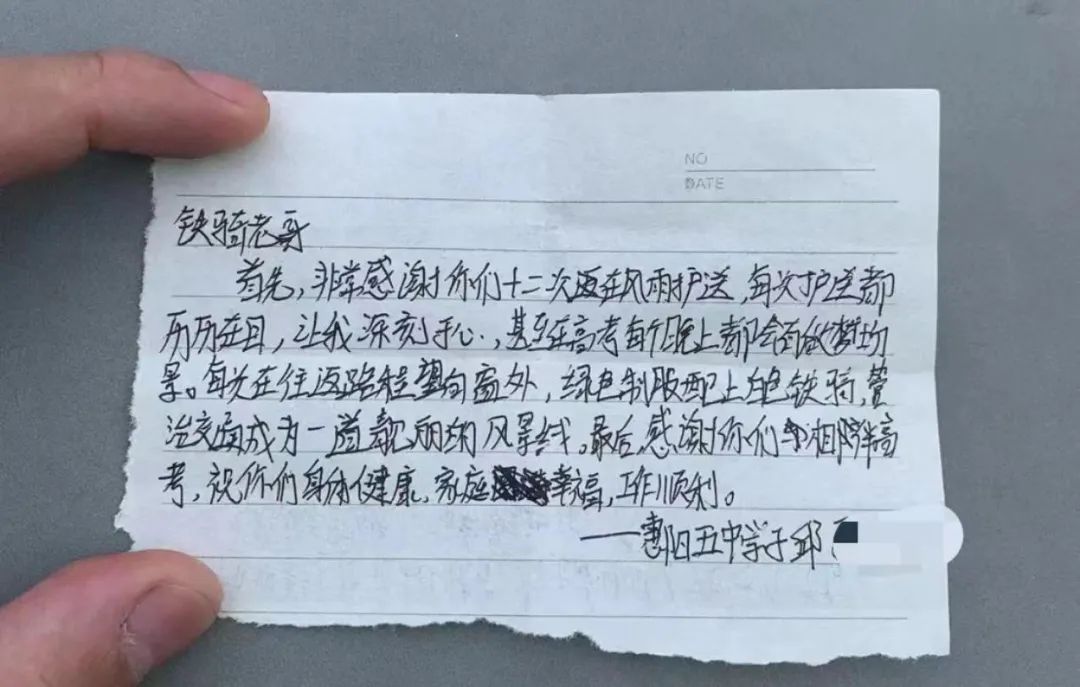 NO
DATE
铁骑老哥
首先，非常感谢你们十二次返在风雨护送，每次护送都
历历在目，让我深刻于心，甚至在高考每个晚上都会做梦场
景。每次在往返路程望向窗外，绿色制服配上白色铁骑，
治交通成为一道靓丽的风景线。最后，感谢你们相伴高
考，祝你们身体健康，家庭幸福，工作顺利。
——惠阳五中学子邱